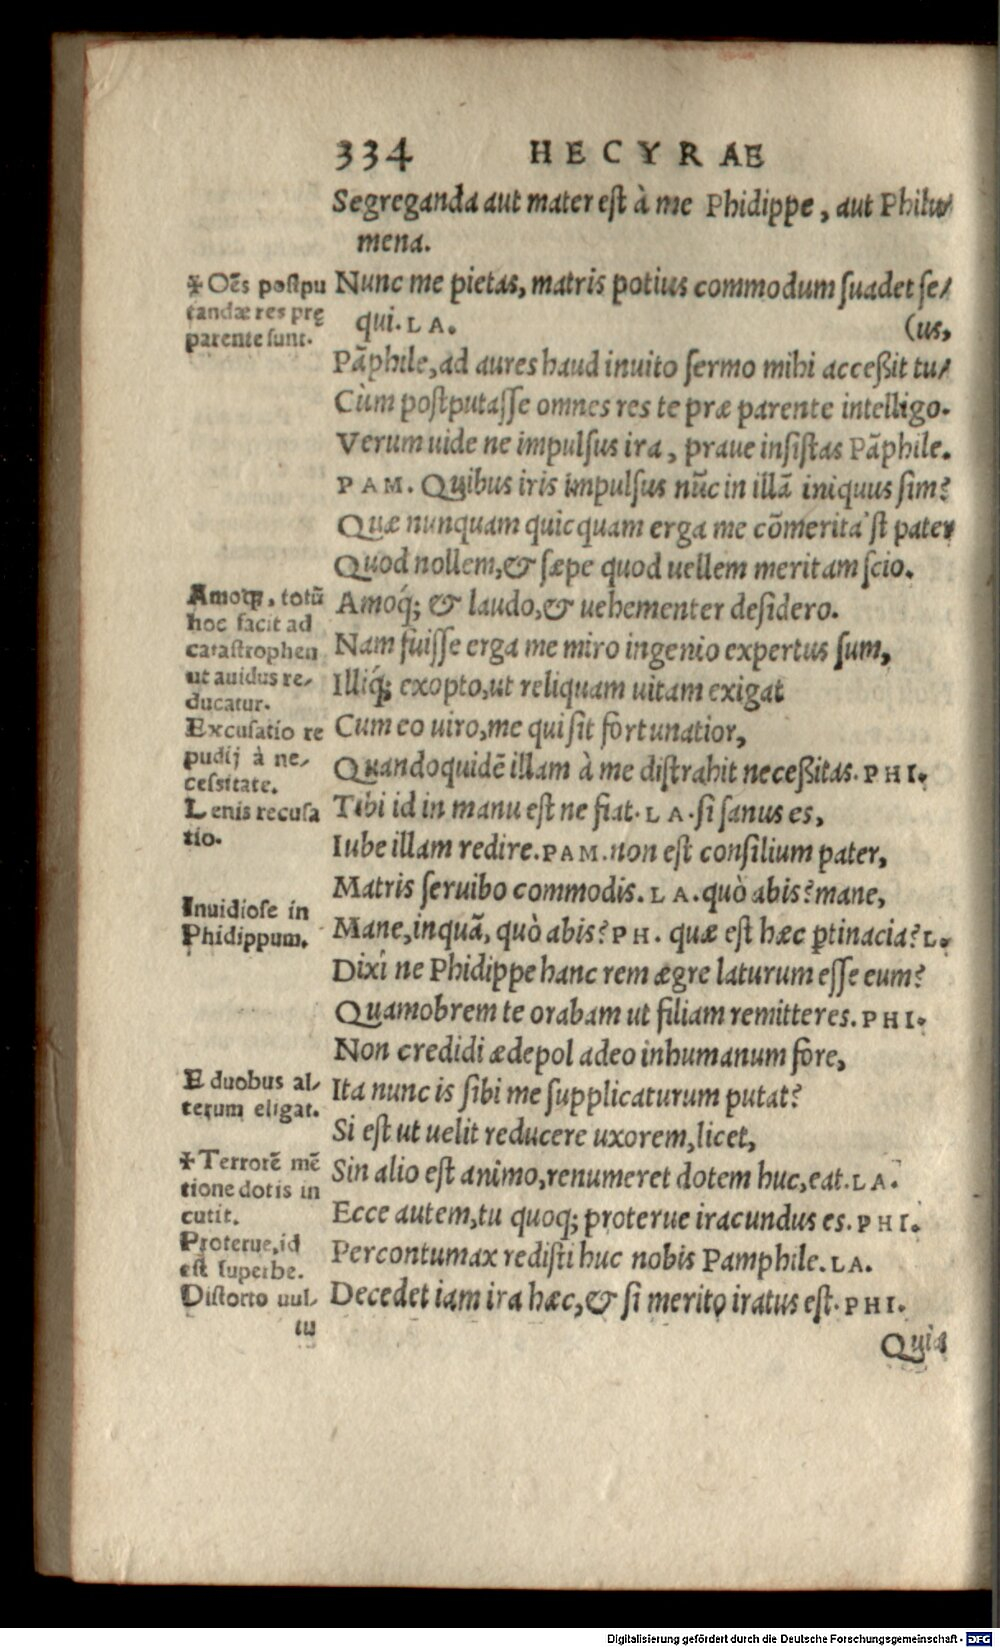 334 HECYRAE
Segreganda aut mater est à me Phidippe, aut Philu/
mena.
Nunc me pietas, matris potius commodum suadet se/
qui. LA. (us,
Pãphile, ad aures haud inuito sermo mihi acceßit tu/
Cùm postputasse omnes res te præ parente intelligo.
Verum uide ne impulsus ira, praue insistas Pãphile.
PAM. Quibus iris impulsus nũc in illã iniquus sim?
Quæ nunquam quicquam erga me cõmerita'st pater
Quod nollem, & sæpe quod uellem meritam scio.
Amoq́; & laudo, & uehementer desidero.
Nam fuisse erga me miro ingenio expertus sum,
Illiq́; exopto, ut reliquam uitam exigat
Cum eo uiro, me qui sit fortunatior,
Quandoquidẽ illam à me distrahit neceßitas. PHI.
Tibi id in manu est ne fiat. LA. si sanus es,
Iube illam redire. PAM. non est consilium pater,
Matris seruibo commodis. LA. quò abis? mane,
Mane, inquã, quò abis? PH. quæ est hæc ꝑtinacia? L.
Dixi ne Phidippe hanc rem ægre laturum esse eum?
Quamobrem te orabam ut filiam remitteres. PHI.
Non credidi ædepol adeo inhumanum fore,
Ita nunc is sibi me supplicaturum putat?
Si est ut uelit reducere uxorem, licet,
Sin alio est animo, renumeret dotem huc, eat. LA.
Ecce autem, tu quoq; proterue iracundus es. PHI.
Percontumax redisti huc nobis Pamphile. LA.
Decedet iam ira hæc, & si merito iratus est. PHI.
Quia
✠ Oẽs postpu
tandæ res prę
parente sunt.
Amoꝙ, totũ
hoc facit ad
catastrophen
ut auidus re/
ducatur.
Excusatio re
pudij à ne/
cessitate.
Lenis recusa
tio.
Inuidiose in
Phidippum.
E duobus al/
terum eligat.
✠ Terrorẽ mẽ
tione dotis in
cutit.
Proterue, id
est superbe.
Distorto uul/
tu
Digitalisierung gefördert durch die Deutsche Forschungsgemeinschaft - DFG